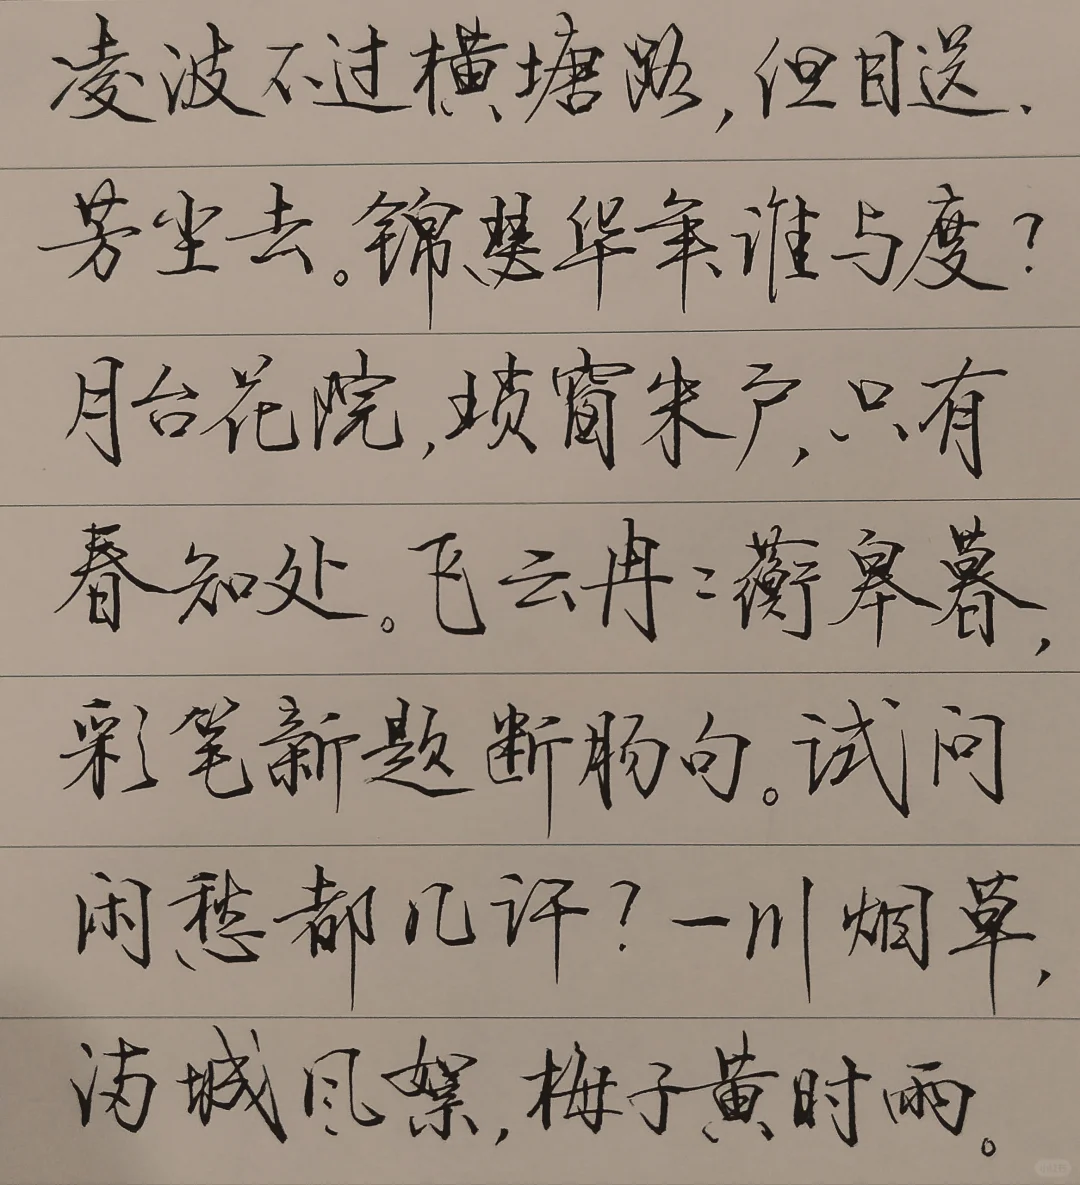 凌波不过横塘路，但目送、
芳尘去。锦瑟华年谁与度？
月台花院，琐窗朱户，只有
春知处。飞云冉々蘅皋暮，
彩笔新题断肠句。试问
闲愁都几许？一川烟草，
满城风絮，梅子黄时雨。